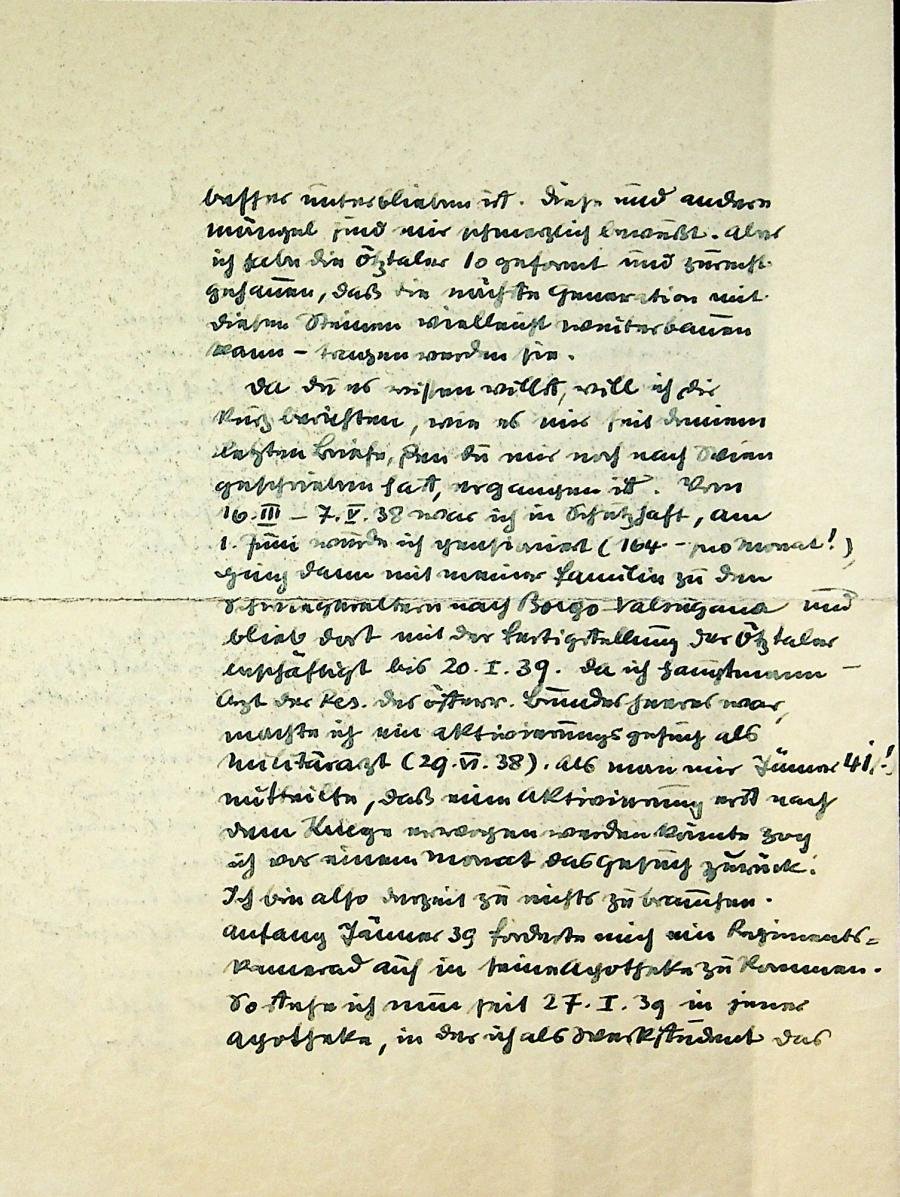 besser unterblieben ist. Diese und andere
Mängel sind mir schmerzlich bewußt. Aber
ich habe die Ötztaler so geformt und zurecht
gehauen, daß die nächste Generation mit
diesen Steinen vielleicht weiterbauen
kann – tragen werden sie.
Da du es wissen willst, will ich dir
kurz berichten, wie es mir seit deinem
letzten Briefe, den du mir noch nach Wien
geschrieben hast, ergangen ist. Vom
16.III – 7.V.38 war ich in Schutzhaft, am
1. Juni wurde ich pensioniert (164 – pro Monat!),
ging dann mit meiner Familie zu den
Schwiegereltern nach Borgo Valsugana und
blieb dort mit der Fertigstellung der Ötztaler
beschäftigt bis 20.I.39. Da ich Hauptmann –
Arzt der Res. des österr. Bundesheeres war,
machte ich ein Aktivierungsgesuch als
Militärarzt (29.VI.38). Als man mir Jänner 41(!)
mitteilte, daß eine Aktivierung erst nach
dem Kriege erwogen werden könnte zog
ich vor einem Monat das Gesuch zurück.
Ich bin also derzeit zu nichts zu brauchen.
Anfang Jänner 39 forderte mich ein Regiments=
kamerad auf in seine Apotheke zu kommen.
So stehe ich nun seit 27.I.39 in jener
Apotheke, in der ich als Werkstudent das